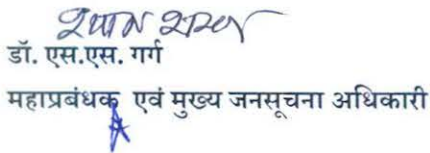 डॉ. एस.एस. गर्ग
महाप्रबंधक एवं मुख्य जनसूचना अधिकारी